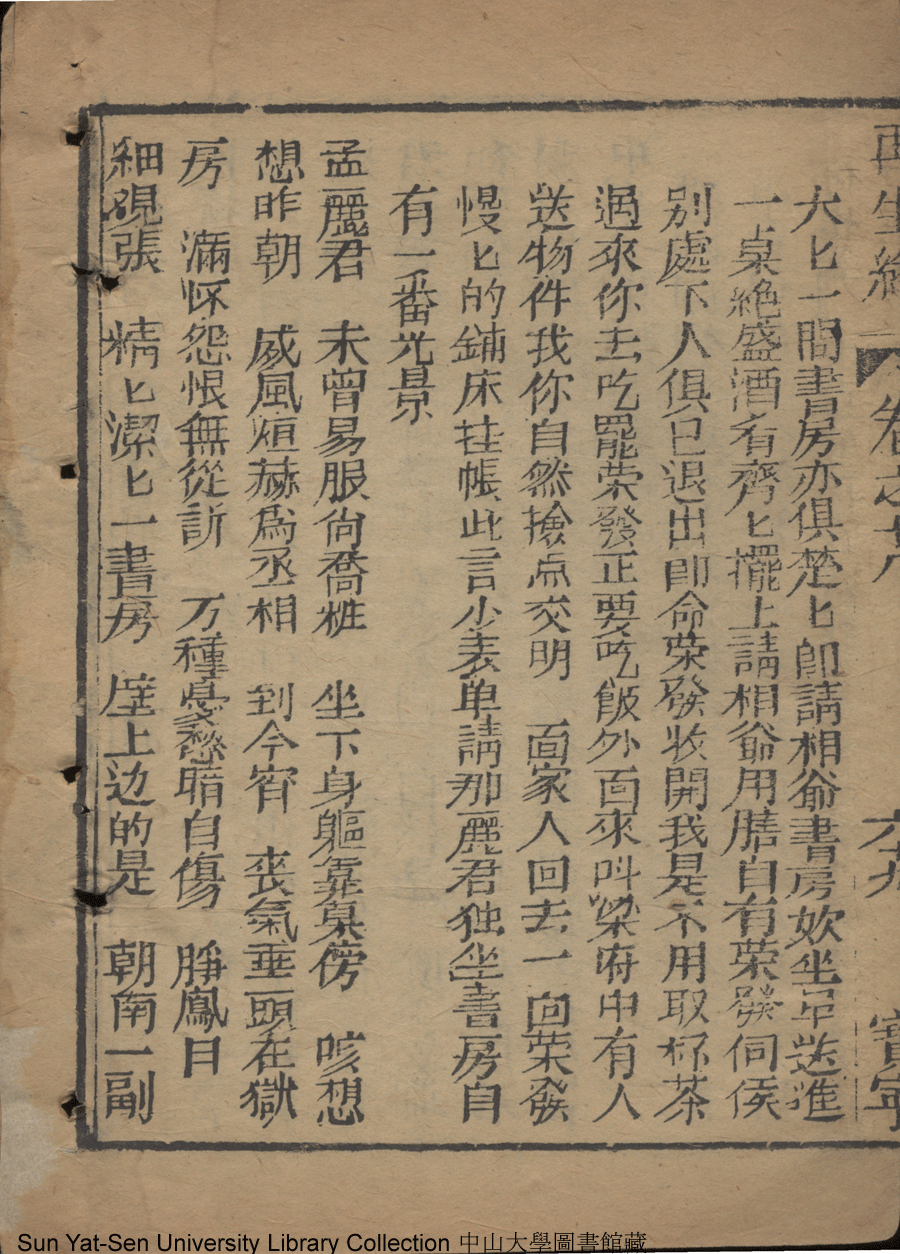 再生緣 卷之廿八 六九 寶寧
大匕一間書房亦俱楚匕卽請相爺書房坎坐吊送進
一桌絶盛酒肴齊匕擺上請相爺用膳自有荣發伺侯
别處下人俱已退出卽命荣發收開我是不用取杯茶
過來你去吃罷荣發正要吃飯外面來叫梁府中有人
送物件我你自然撿点交明 面家人回去一向荣發
慢匕的鋪床挂帳此言少表单請那麗君独坐書房自
有一番光景
孟麗君 未曾易服尙喬粧 坐下身軀靠桌傍 咳想
想昨朝 威風烜赫爲丞相 到今宵 喪氣垂頭在獄
房 滿怀怨恨無從訴 万種憂愁暗自傷 睁鳳目
細覌張 精匕潔匕一書房 壁上边的是 朝南一副
Sun Yat-Sen University Library Collection 中山大學圖書館藏